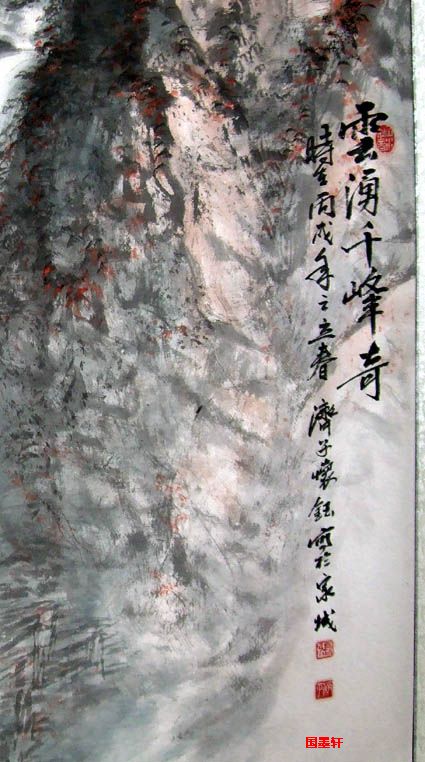 雲湧千峰奇
時在丙戌年之立春 濟子懷鈺寫於家城
国墨轩